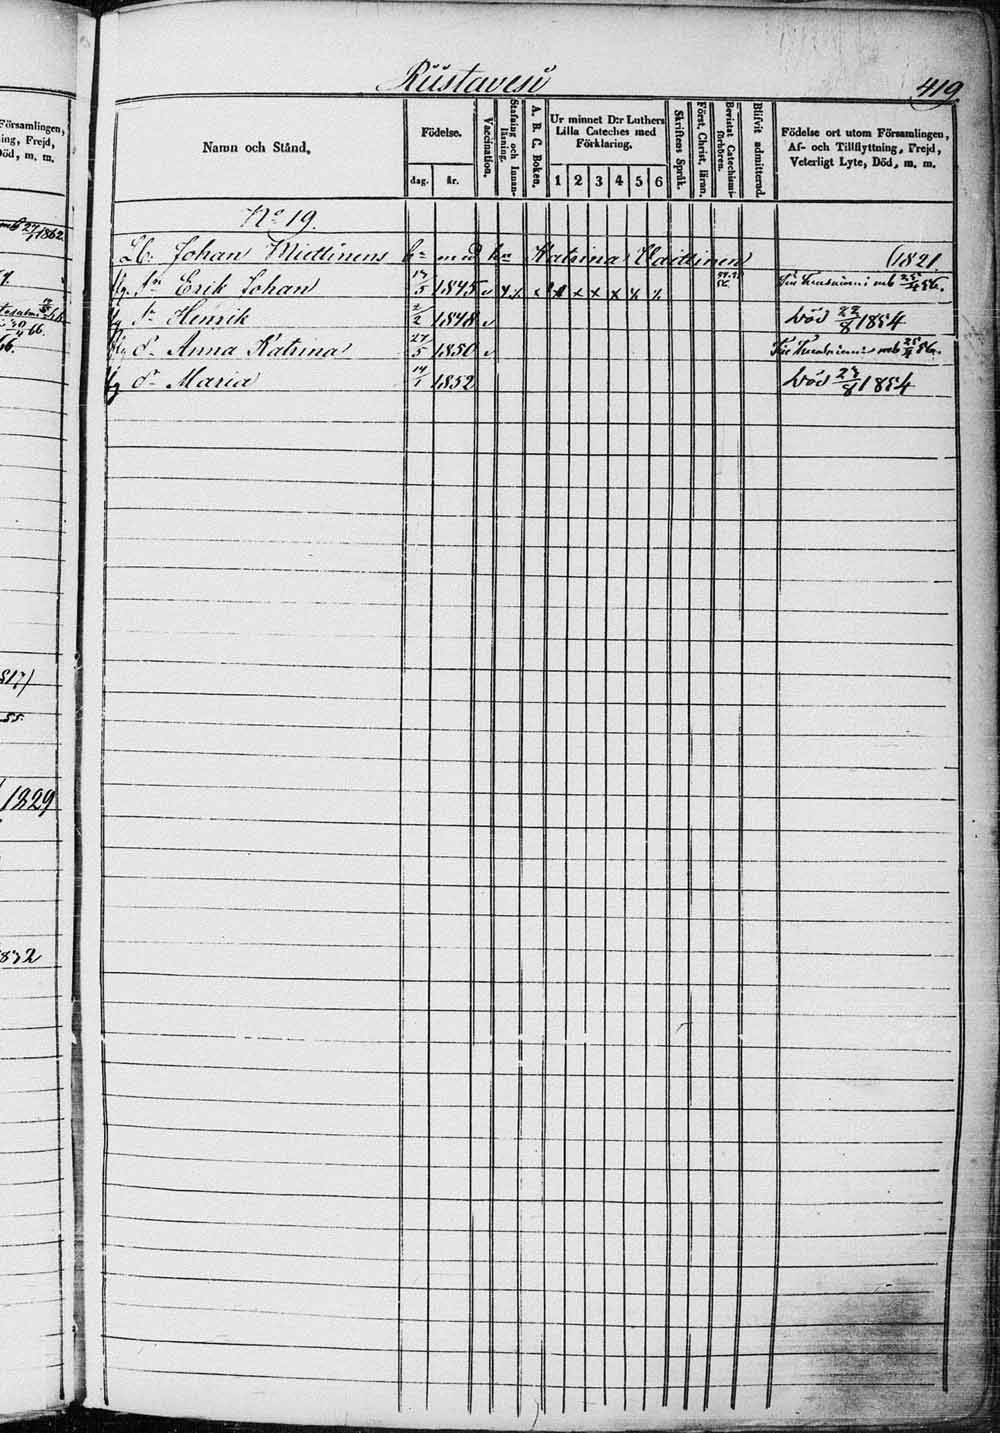 Rustavesi
419
Församlingen,
ing, Frejd,
Död, m. m.
Namn och Stånd.
Födelse.
dag.
år.
Vaccination.
Stafning och Innanläsning.
A. B. C. Boken.
Ur minnet D:r Luthers Lilla Cateches med Förklaring.
1 2 3 4 5 6
Skriftens Språk.
Först. Christ. läran.
Bevistat Catechismiförhören.
Blifvit admitterad.
Födelse ort utom Församlingen,
Af- och Tillflyttning, Frejd,
Veterligt Lyte, Död, m. m.
No 19.
Lb. Johan Miettinens bn med hu Katrina Vaittinen (1821.
Sn Erik Johan 17/5 1845 v x x x x x x x x x mb 25/4 56.
Sn Henrik 2/2 1848 v Död 22/8 1854
dr Anna Katrina 27/5 1850 v mb
dr Maria 1852 Död 23/8 1854
27/1 1862.
817)
55.
1829
832